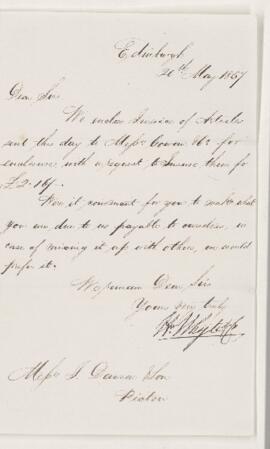 Edinburgh
20th May 1857
Dear Sirs
We enclose Invoice of Articles
sent this day to Messrs Cowan & Co for
enclosure with a request to Insure them for
£2.16/.
Were it convenient for you to make what
you are due to us payable to ourselves, in
case of mixing it up with others, we would
prefer it.
We remain Dear Sirs
Yours very truly
Messrs J. Dawson & Son
Pictou